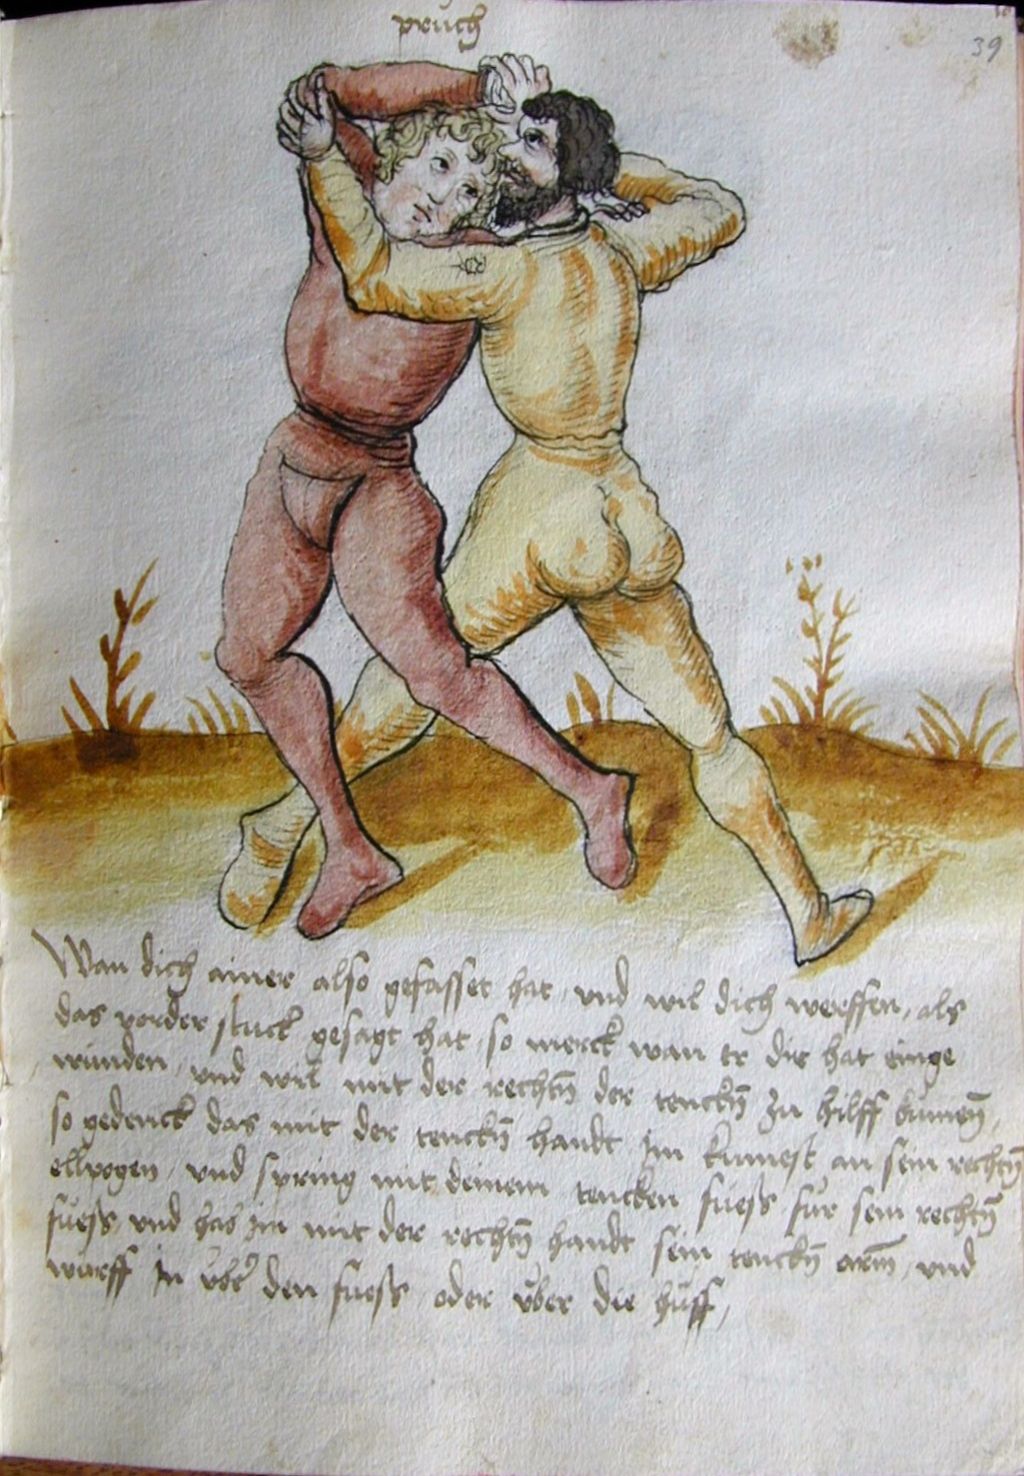 pruch
39
Wan dich ainer also gefasset hat, und wil dich werffen, als
das vorder stuck gesagt hat, so merck wan er dir hat einge
wunden, und wil mit der rechtñ der tenckñ zu hilff kumeñ,
so gedenck das mit der tenckñ handt im kumest an sein rechtñ
ellpogen, und spring mit deinem tencken fuess für sein rechtñ
fuess und has im mit der rechtñ handt sein tenckñ arm, und
würff in über den fuess, oder über die hüff,